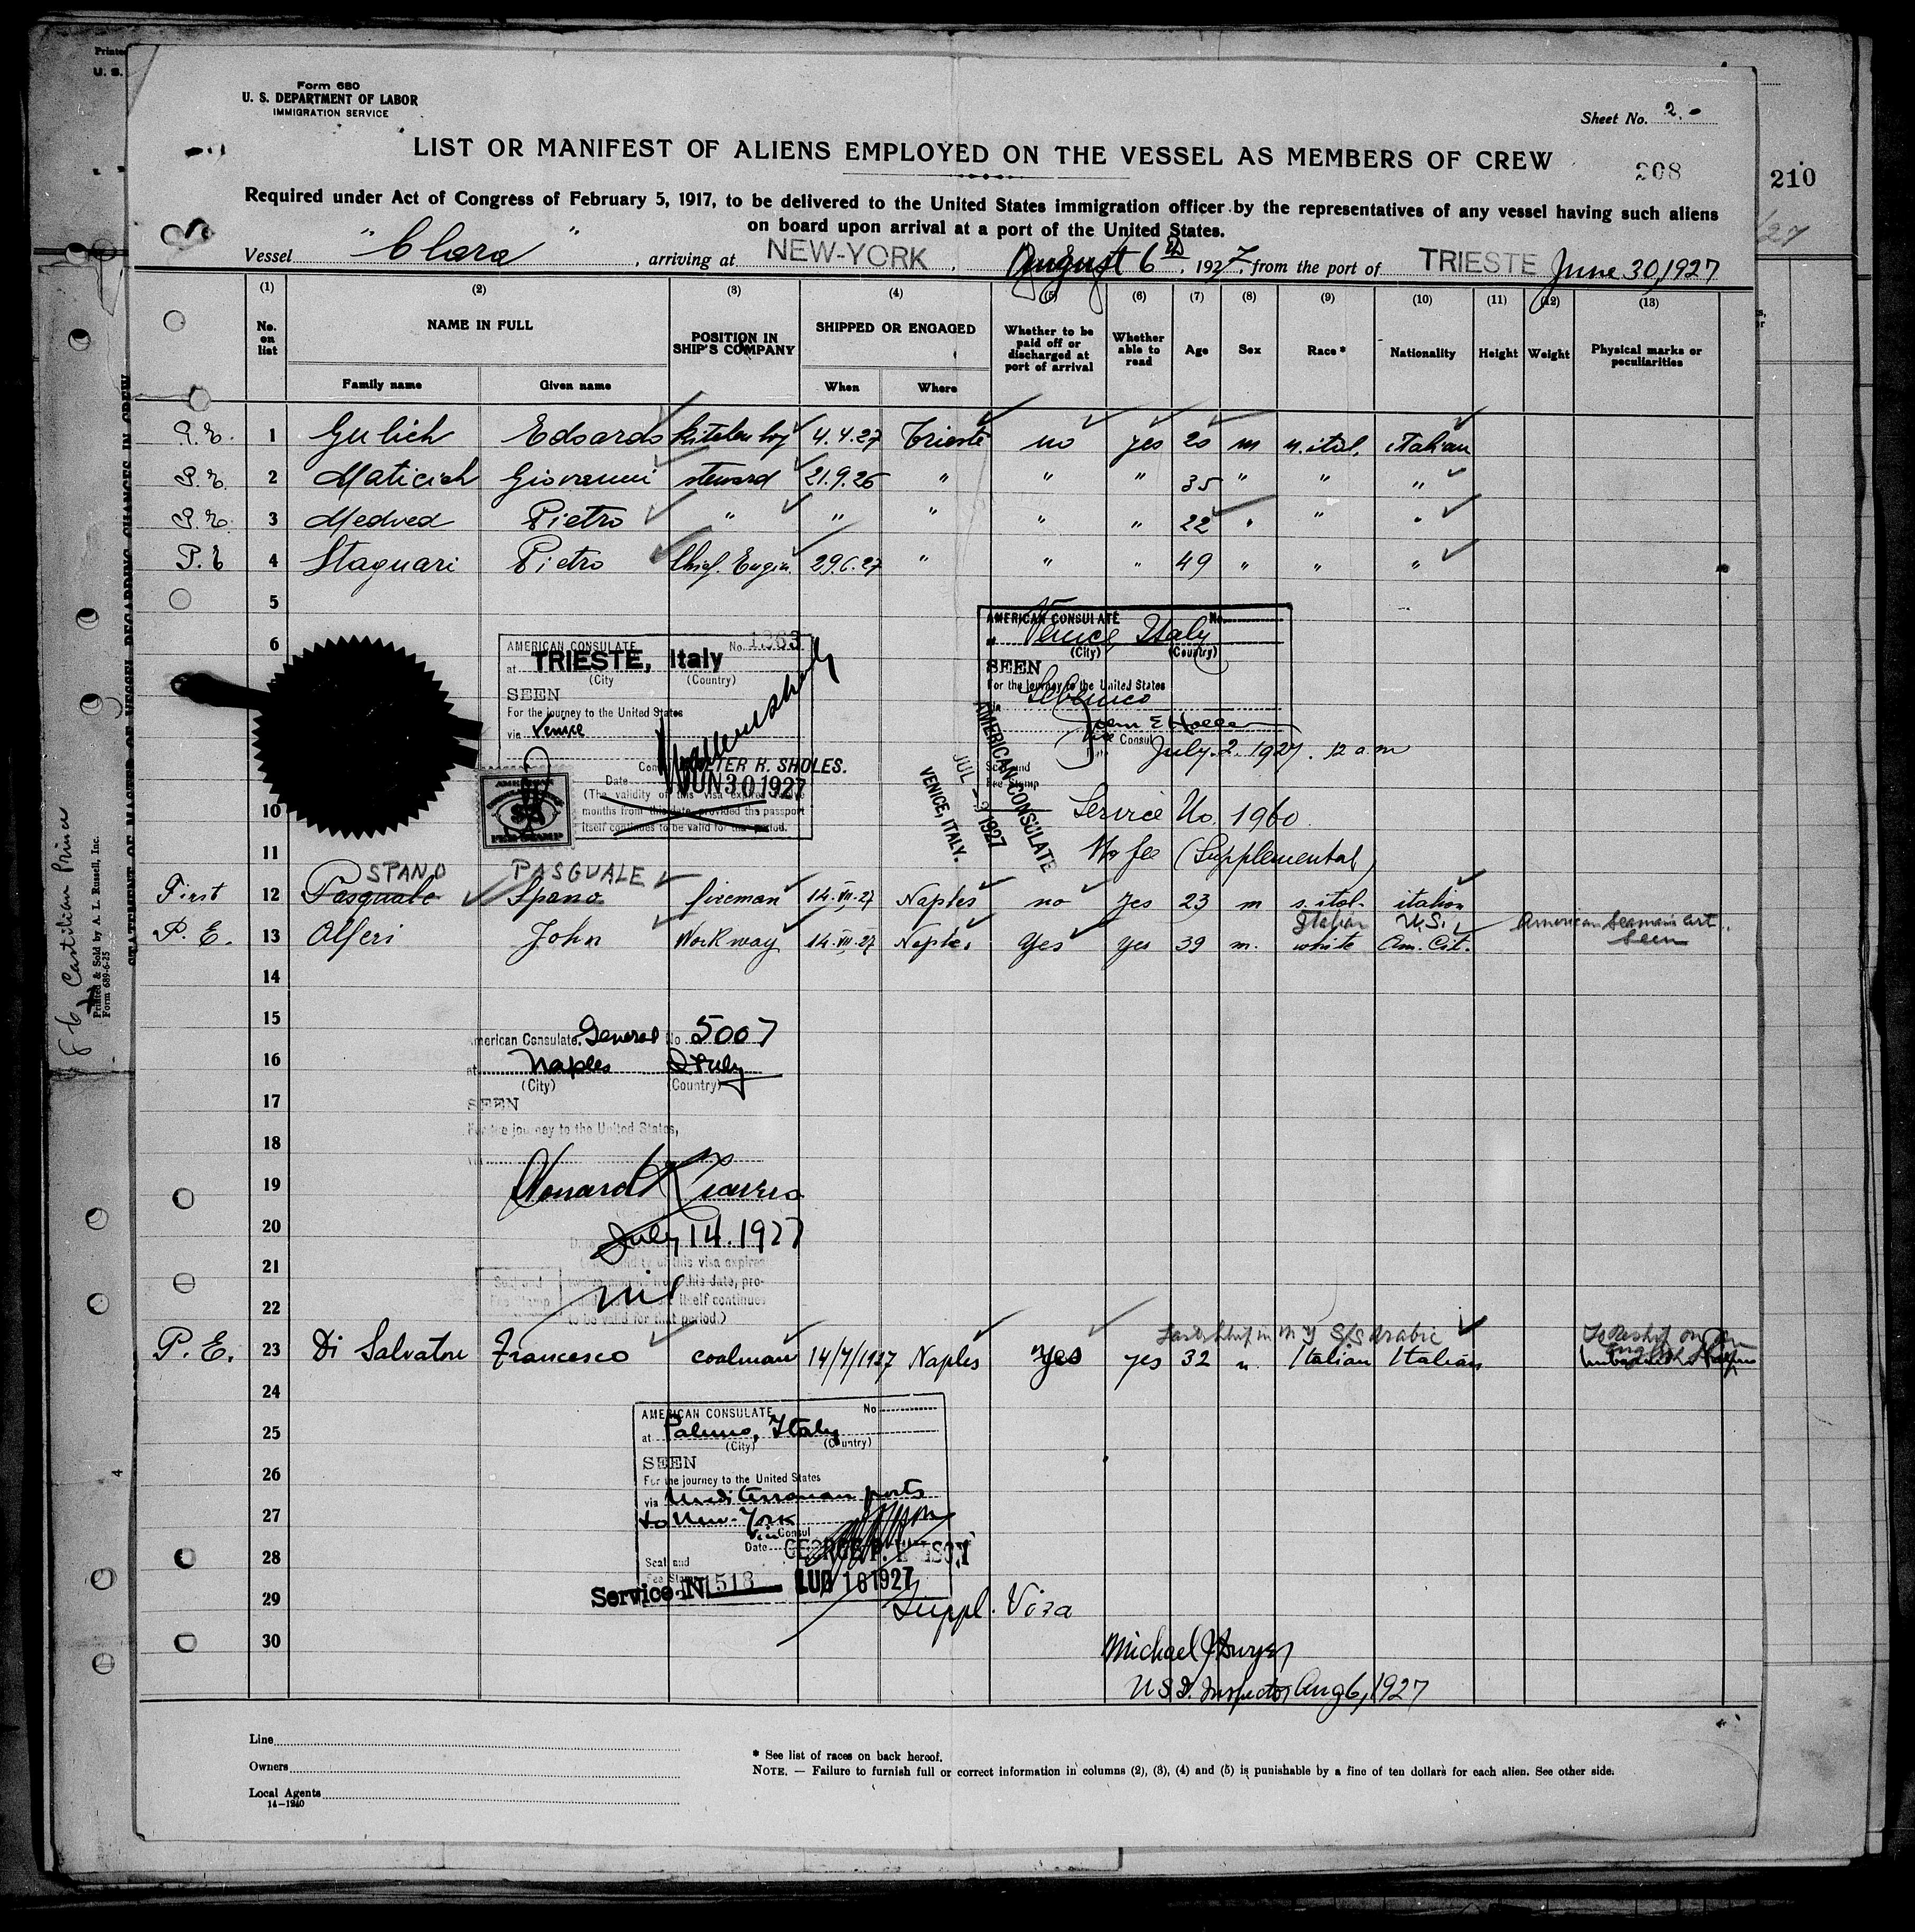 Printed
U. S.
Form 680
U. S. DEPARTMENT OF LABOR
IMMIGRATION SERVICE
Sheet No. 2.
LIST OR MANIFEST OF ALIENS EMPLOYED ON THE VESSEL AS MEMBERS OF CREW
208
210
Required under Act of Congress of February 5, 1917, to be delivered to the United States immigration officer by the representatives of any vessel having such aliens
on board upon arrival at a port of the United States.
Vessel "Clara", arriving at NEW-YORK, August 6th, 1927, from the port of TRIESTE June 30, 1927
(1) (2) (3) (4) (5) (6) (7) (8) (9) (10) (11) (12) (13)
No. on list NAME IN FULL POSITION IN SHIP'S COMPANY SHIPPED OR ENGAGED Whether to be paid off or discharged at port of arrival Whether able to read Age Sex Race* Nationality Height Weight Physical marks or peculiarities
Family name Given name When Where
P.E. 1 Gulich Edoardo kitchen boy 4.4.27 Trieste no yes 20 m n. ital. italian
P.E. 2 Maticich Giovanni steward 21.9.26 " " " 35 " " "
P.E. 3 Medved Pietro " " " " " 22 " " "
P.E. 4 Stagnari Pietro Chief. Engin. 29.6.27 " " " 49 " " "
5
6
AMERICAN CONSULATE No. 1363
at TRIESTE, Italy
(City (Country)
SEEN
For the journey to the United States
via Venice
WALTER H. SHOLES.
Date JUN 30 1927
(The validity of this visa expires
months from this date, provided the passport
itself continues to be valid for that period.
AMERICAN
FEE STAMP
AMERICAN CONSULATE No.
at Venice, Italy
(City) (Country)
SEEN
For the journey to the United States
via Sebenico
John E Holler
Vice Consul
July. 2. 1927. 12 a.m
Seal and
Fee Stamp
AMERICAN CONSULATE
JUL - 2 1927
VENICE, ITALY.
Service No. 1960
No fee (Supplemental)
10
11
SPANO PASQUALE
First 12 Pasquale Spano fireman 14.VII.27 Naples no yes 23 m s. ital. italian
Italian U.S. American Seaman's cert. seen
P. E. 13 Alferi John Workway 14.VII.27 Naples Yes yes 39 m. white Am. Cit.
14
15
American Consulate General No 5007
16
at Naples Italy
(City) (Country)
17
SEEN
For the journey to the United States,
18
via
19
20
July 14. 1927
21
this visa expires
this date, pro-
Seal and
Fee Stamp
nil
itself continues
22
to be valid for that period.)
P. E. 23 Di Salvatore Francesco coalman 14/7/1927 Naples yes yes 32 m. Italian Italian
24
AMERICAN CONSULATE No
25
at Palermo, Italy
(City) (Country)
26
SEEN
For the journey to the United States
via Mediterranean ports
27
to New-York
Vice Consul
Date
28
Seal and
Fee Stamp
Service No 1513 LUG 16 1927
29
Suppl. Visa
30
Michael J Dwyer
U S I. Inspector Aug 6, 1927
Line
Owners
Local Agents
14—1240
* See list of races on back hereof.
NOTE. — Failure to furnish full or correct information in columns (2), (3), (4) and (5) is punishable by a fine of ten dollars for each alien. See other side.
STATEMENT OF MASTER OF VESSEL REGARDING CHANGES IN CREW
Castilian Prince
Printed & Sold by A. L. Russell, Inc.
Form 689-6-25
4